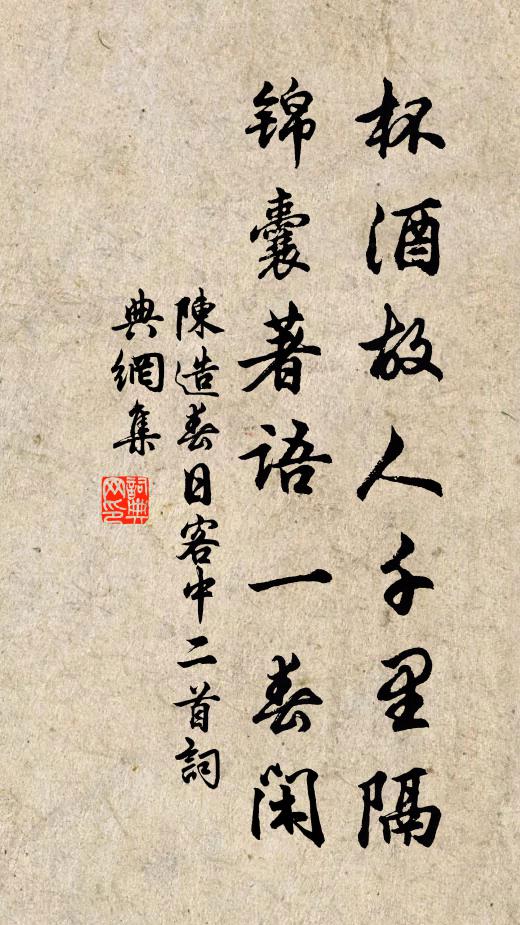 杯酒故人千里隔
锦囊著语一春闲
陳造春日客中二首詞
典網集
詞典
网印